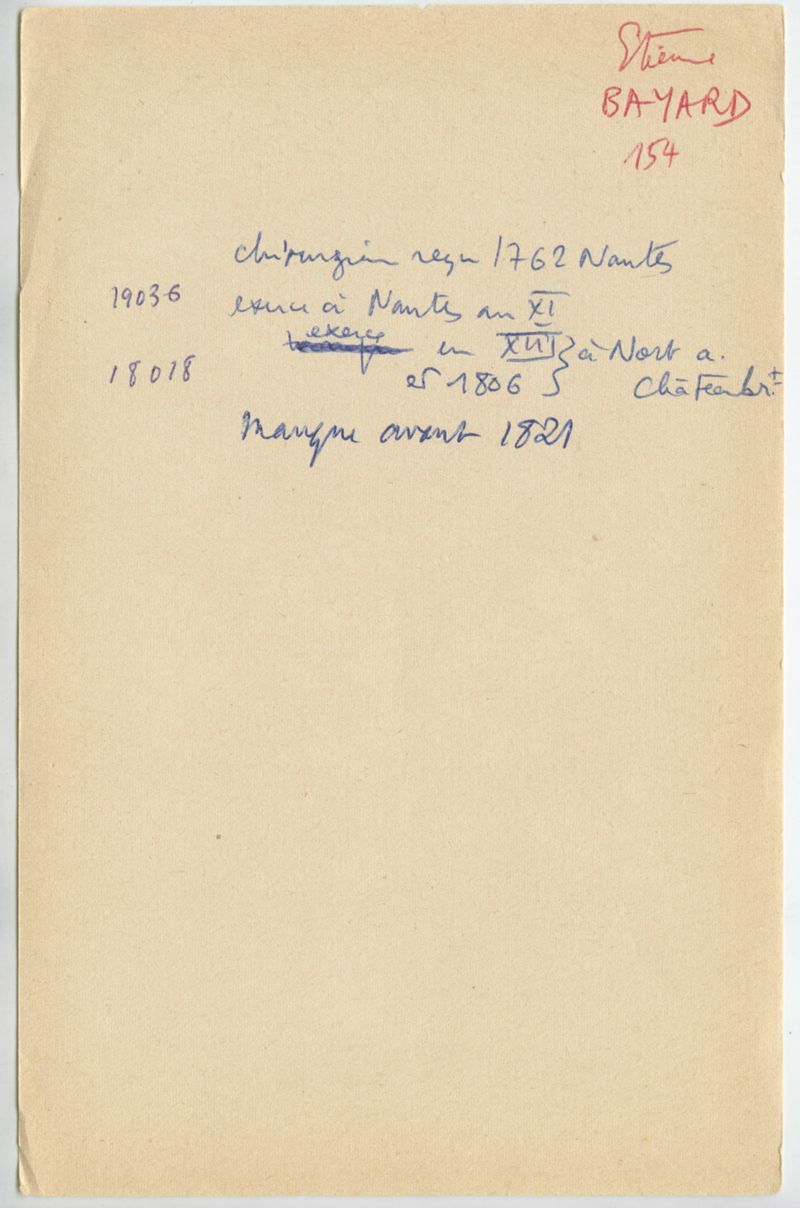 Etienne
BAYARD
154
chirurgien reçu 1762 Nantes
19036 exerce à Nantes an XI
exerce en XIII } à Nort a.
18018 et 1806 } Châteaubr.t
manque avant 1821